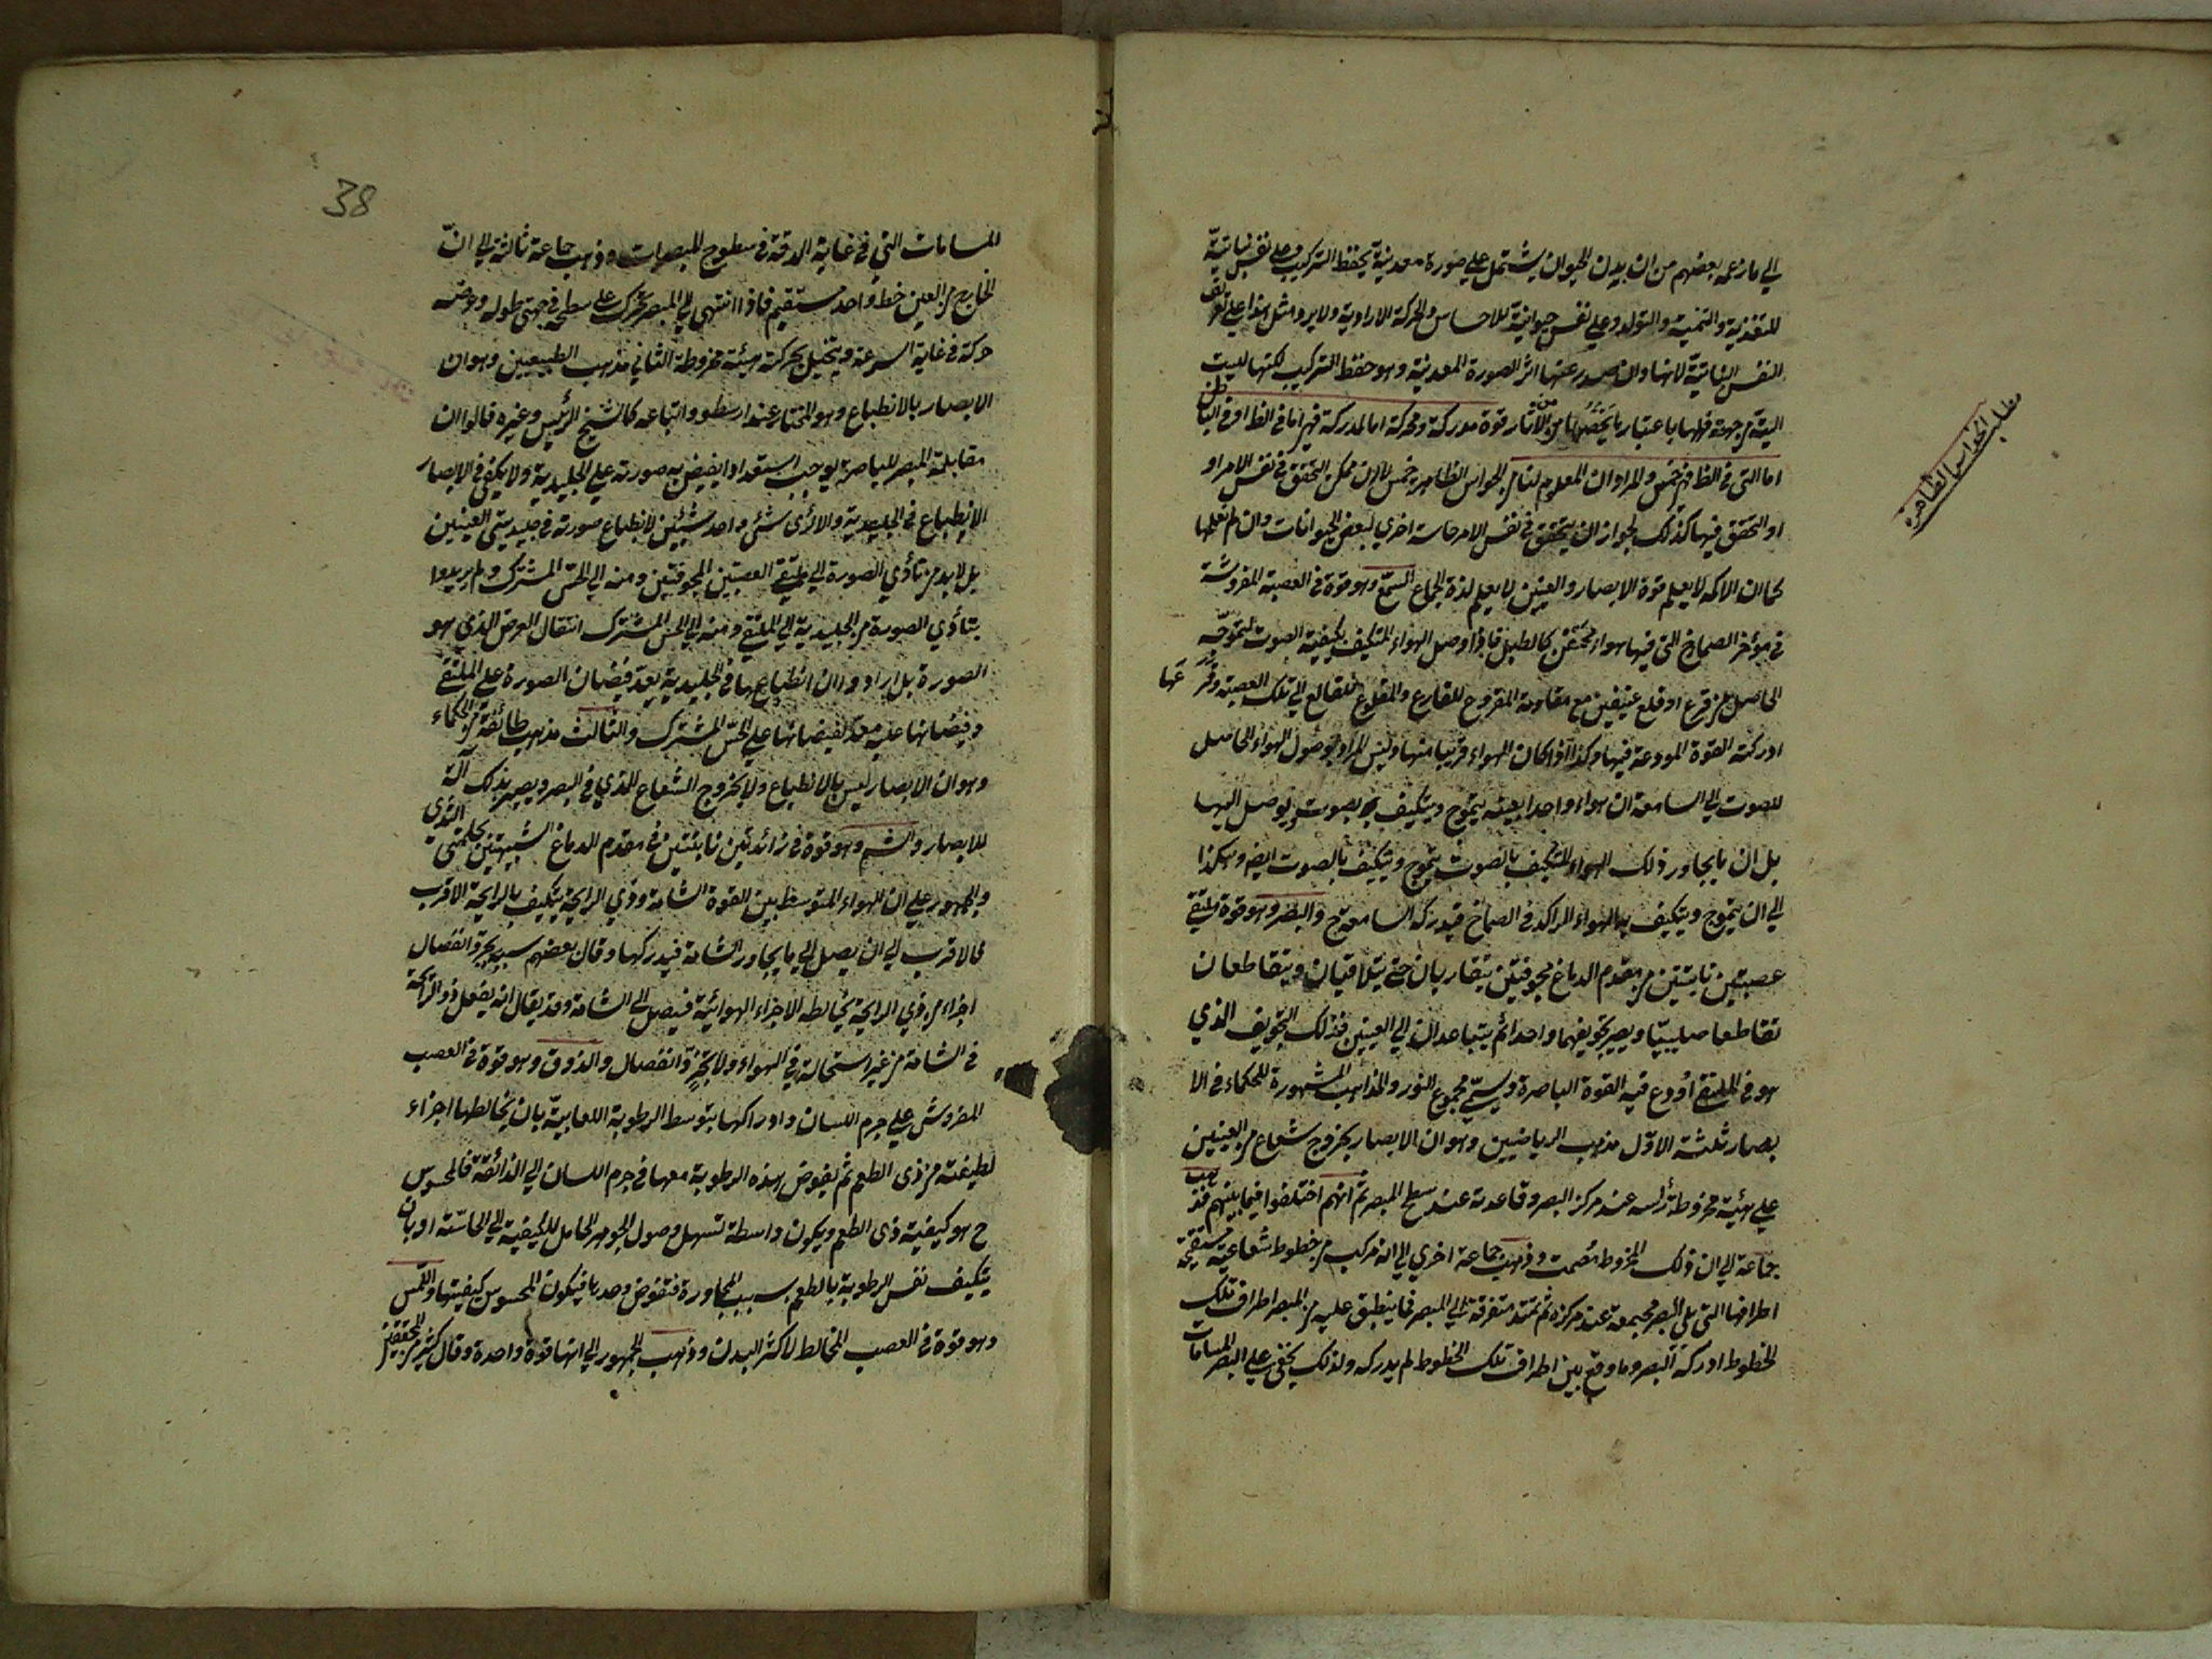 الي ما زعمه بعضهم من ان بدن الحيوان يشتمل علي صورة معدنية يحفظ التركيب وعلي نفس نباتية
للتغذية والتنمية والتوليد وعلي نفس حيوانية للاحساس والحركة الارادية ولا يرد مثل هذا علي تعريف
النفس النباتية لانها وان صدر عنها اثر الصورة المعدنية وهو حفظ التركيب لكنها ليست
الية من جهته فلها باعتبار ما يخصها من الآثار قوة مدركة ومحركة اما المدركة فهي اما في الظ او في الباطن
اما التي في الظ فهي خمس والمراد ان المعلوم لنا من الحواس الظاهرة خمس لا ان ممكن التحقق في نفس الامر او
او التحقق فيها كذلك لجواز ان يتحقق في نفس الامر حاسة اخري لبعض الحيوانات وان لم نعلمها
كما ان الاكمه لا يعلم قوة الابصار والعنين لا يعلم لذة الجماع السمع وهو قوة في العصبة المفروشة
في مؤخر الصماخ التي فيها هواء محتقن كالطبل فاذا وصل الهواء المتكيف بكيفية الصوت لتموجه
الحاصل من قرع او قلع عنيفين مع مقاومة المقروع للقارع والمقلوع للقالع الي تلك العصبة وقرعها
ادركته القوة المودعة فيها وكذا اذا كان الهواء قريبا منها وليس المراد بوصول الهواء الحامل
للصوت الي السامعة ان هواء واحدا بعينه يتموج ويتكيف بصوت ويوصل اليها
بل ان ما يجاور ذلك الهواء المتكيف بالصوت يتموج ويتكيف بالصوت ايض وهكذا
الي ان يتموج ويتكيف به الهواء الراكد في الصماخ فيدركه السامعة ح والبصر وهو قوة في ملتقي
عصبتين نابتتين من مقدم الدماغ مجوفتين يتقاربان حتي يتلاقيان ويتقاطعان
تقاطعا صليبيا ويصير تجويفهما واحدا ثم يتباعدان الي العينين فذلك التجويف الذي
هو في الملتقي اودع فيه القوة الباصرة ويسمي مجمع النور والمذاهب المشهورة للحكماء في الا
بصار ثلثة الاول مذهب الرياضيين وهو ان الابصار بخروج شعاع من العينين
علي هيئة مخروطة رأسه عند مركز البصر وقاعدته عند سطح المبصر ثم انهم اختلفوا فيما بينهم فذهب
جماعة الي ان ذلك المخروط مصمت وذهب جماعة اخري الي انه مركب من خطوط شعاعية مستقيمة
اطرافها التي تلي البصر مجتمعة عند مركزه ثم تمتد متفرقة الي المبصر فما ينطبق عليه من المبصر اطراف تلك
الخطوط ادركه البصر وما وقع بين اطراف تلك الخطوط لم يدركه ولذلك يخفي علي البصر المسامات
مطلب الحواس الظاهرة
38
المسامات التي في غاية الدقة في سطوح المبصرات وذهب جماعة ثالثة الي ان
الخارج من العين خط واحد مستقيم فاذا انتهي الي المبصر تحرك علي سطحه في جهتي طوله وعرضه
حركة في غاية السرعة ويتخيل بحركته هيئة مخروطة الثاني مذهب الطبيعيين وهو ان
الابصار بالانطباع وهو المختار عند ارسطو واتباعه كالشيخ الرئيس وغيره قالوا ان
مقابلة المبصر للباصرة يوجب استعدادا يفيض به صورته علي الجليدية ولا يكفي في الابصار
الانطباع في الجليدية والا لرؤي شئ واحد شيئين لانطباع صورته في جليديتي العينين
بل لا بد من تأدي الصورة الي ملتقي العصبتين المجوفتين ومنه الي الحس المشترك ولم يريدوا
بتأدي الصورة من الجليدية الي الملتقي ومنه الي الحس المشترك انتقال العرض الذي هو
الصورة بل ارادوا ان انطباعها في الجليدية يعد فيضان الصورة علي الملتقي
وفيضانها عليه معد لفيضانها علي الحس المشترك والثالث مذهب طائفة من الحكماء
وهو ان الابصار ليس بالانطباع ولا بخروج الشعاع الذي في البصر ويصير بذلك آلة
للابصار والشم وهو قوة في زائدتين نابتتين في مقدم الدماغ الشبيهتين بحلمتي الثدي
والجمهور علي ان الهواء المتوسط بين القوة الشامة وذي الرايحة يتكيف بالرايحة الاقرب
فالاقرب الي ان يصل الي ما يجاور الشامة فيدركها وقال بعضهم سببه تجزؤ وانفصال
اجزاء من ذي الرايحة يخالطه الاجزاء الهوائية فيصل الي الشامة وقد يقال انه يفعل ذو الرائحة
في الشامة من غير استحالة في الهواء ولا تجزؤ وانفصال والذوق وهو قوة في العصب
المفروش علي جرم اللسان وادراكها بتوسط الرطوبة اللعابية بان يخالطها اجزاء
لطيفة من ذي الطعم ثم يغوض هذه الرطوبة معها في جرم اللسان الي الذائقة فالمحسوس
ح هو كيفية ذي الطعم ويكون واسطة لتسهيل وصول الجوهر الحامل للكيفية الي الحاسة او بان
يتكيف نفس الرطوبة بالطعم بسبب المجاورة فتغوض وحدها فيكون المحسوس كيفيتها واللمس
وهو قوة في العصب المخالط لاكثر البدن وذهب الجمهور الي انها قوة واحدة وقال كثير من المحققين